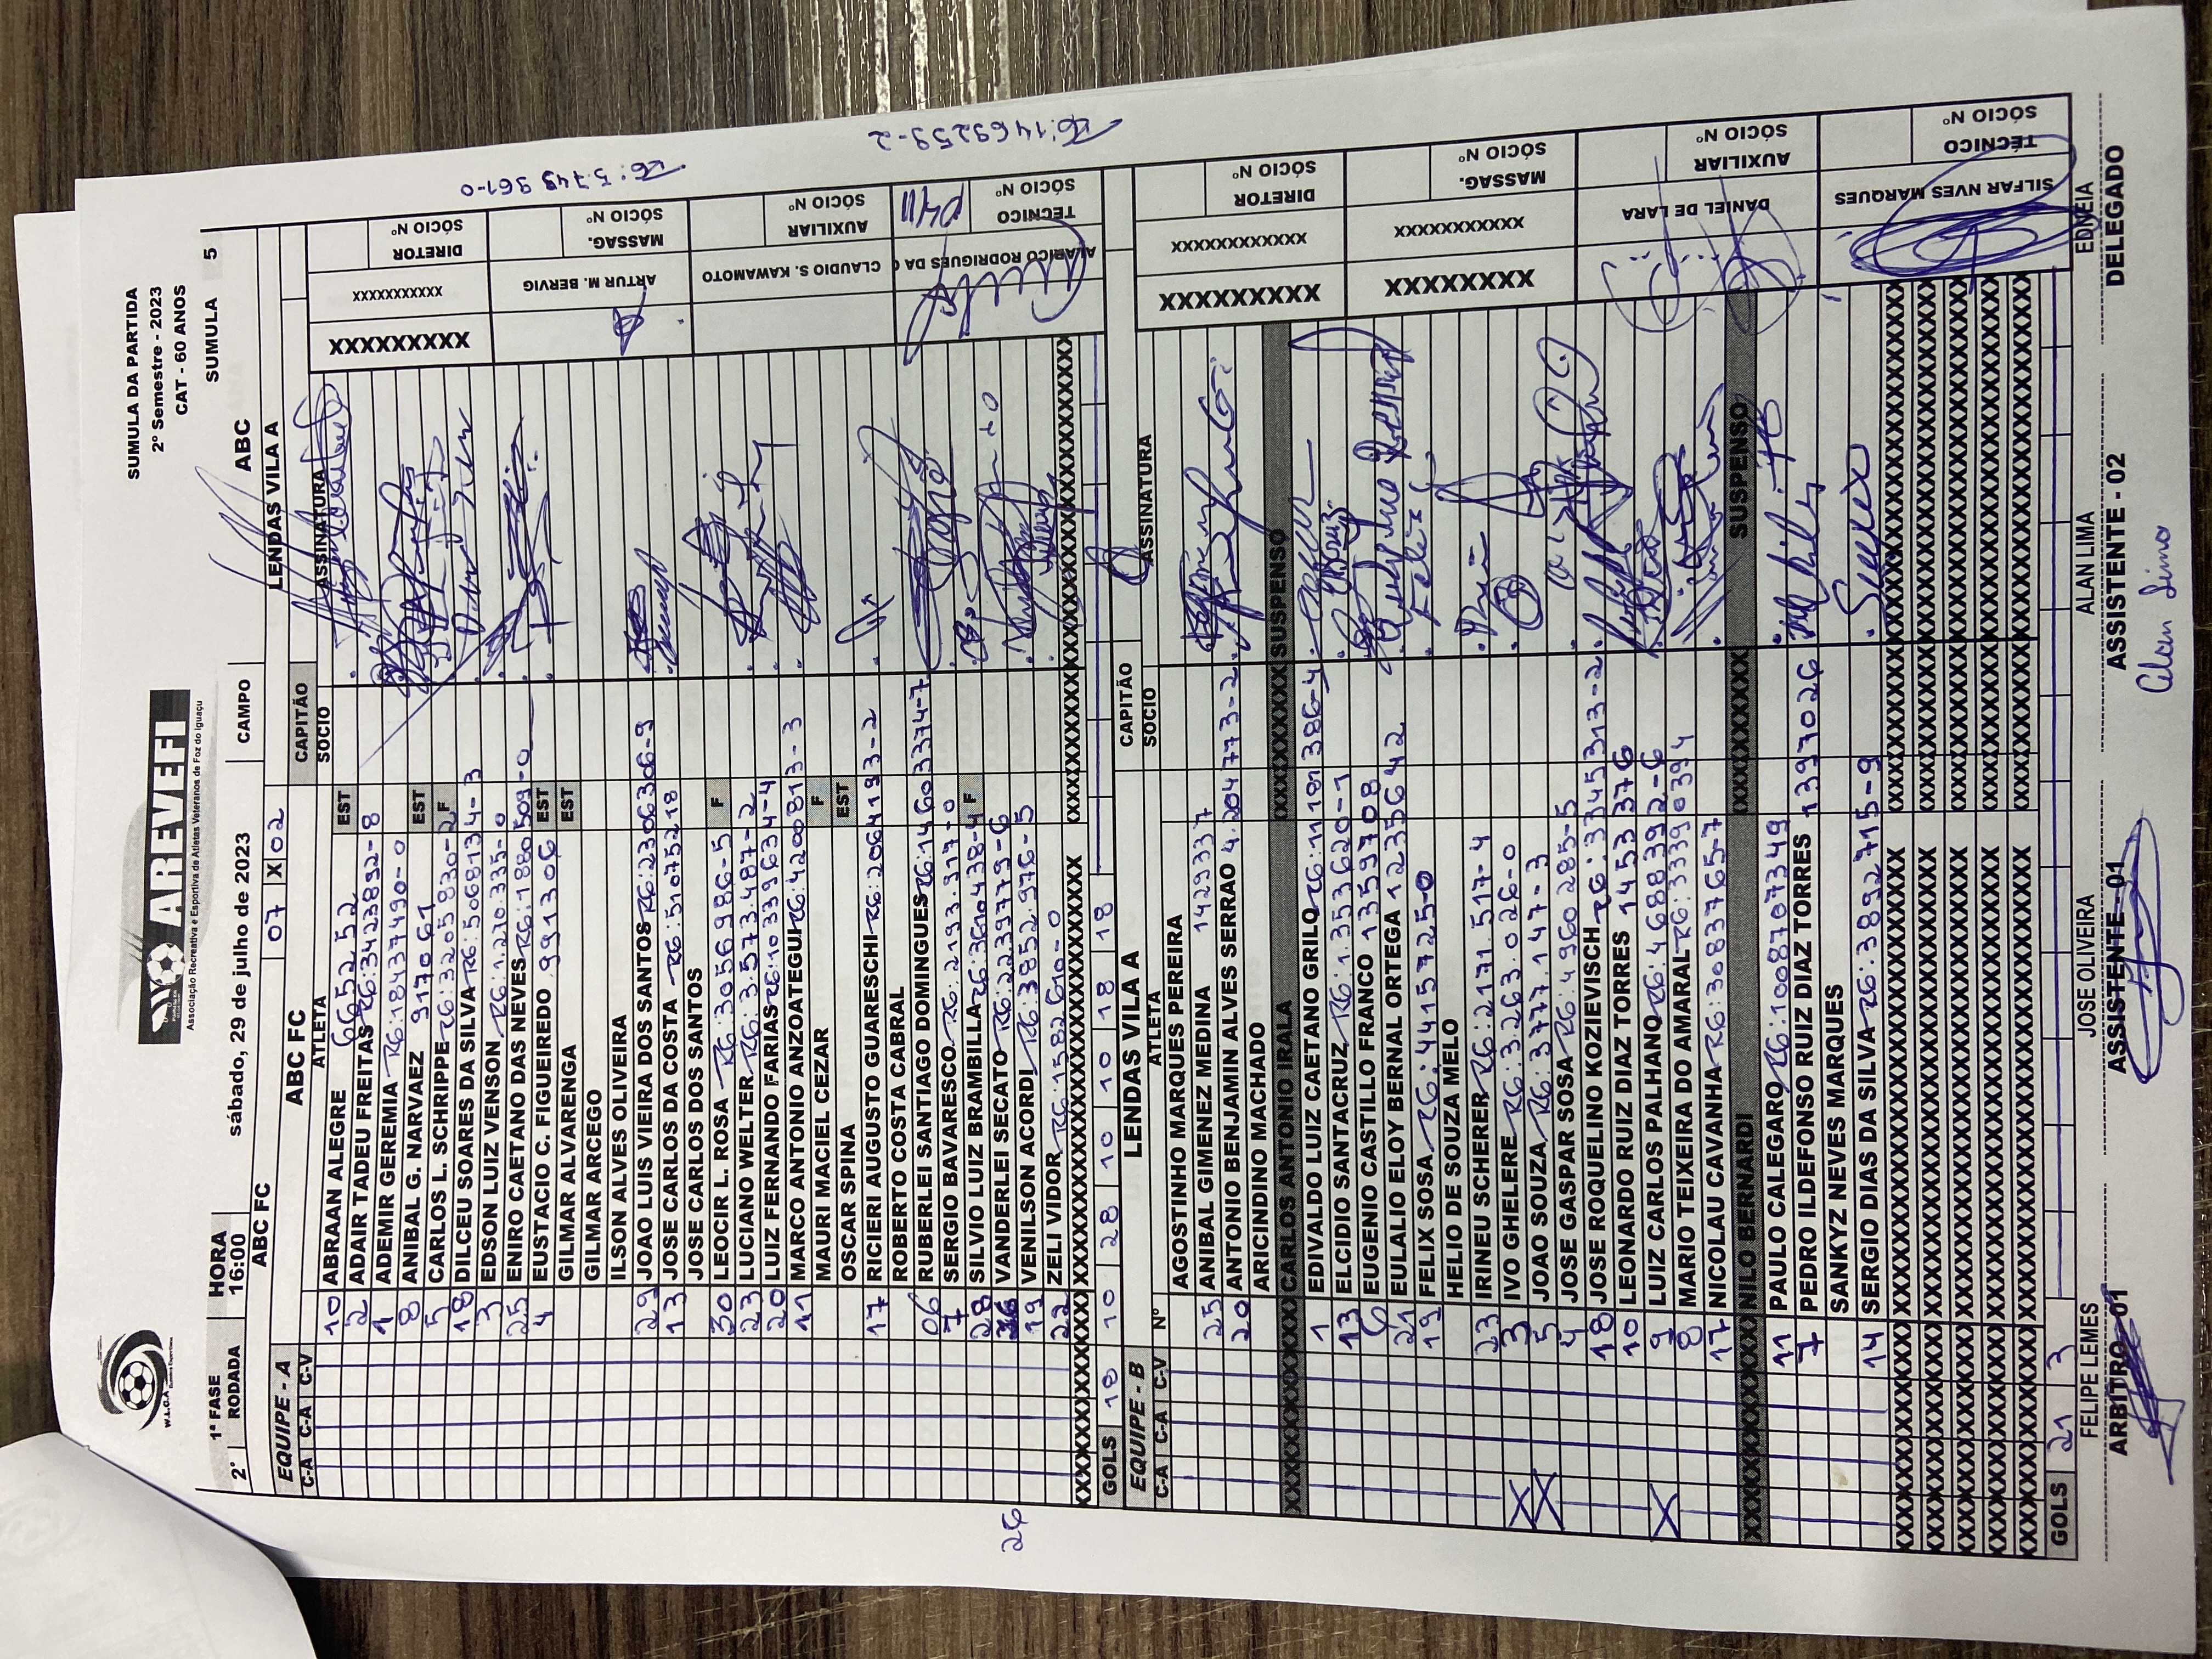 W.L.C.A
AREVEFI
Associação Recreativa e Esportiva de Atletas Veteranos de Foz do Iguaçu
SUMULA DA PARTIDA
2º Semestre - 2023
CAT - 60 ANOS
1ª FASE HORA
2ª RODADA 16:00 sábado, 29 de julho de 2023 CAMPO ABC SUMULA 5
ABC FC 07 X 02 LENDAS VILA A
EQUIPE - A ABC FC CAPITÃO
C-A C-A C-V ATLETA SOCIO ASSINATURA
10 ABRAAN ALEGRE 665252 EST
2 ADAIR TADEU FREITAS RG:3423892-8
1 ADEMIR GEREMIA RG:18437490-0
8 ANIBAL G. NARVAEZ 917061 EST
5 CARLOS L. SCHRIPPE RG:3205830-2 F
18 DILCEU SOARES DA SILVA RG:5068134-3
3 EDSON LUIZ VENSON RG:1.210.335-0
25 ENIRO CAETANO DAS NEVES RG:1880509-0
4 EUSTACIO C. FIGUEIREDO 9991306 EST
GILMAR ALVARENGA EST
GILMAR ARCEGO
ILSON ALVES OLIVEIRA
29 JOAO LUIS VIEIRA DOS SANTOS RG:2306306-9
13 JOSE CARLOS DA COSTA RG:51075218
JOSE CARLOS DOS SANTOS
30 LEOCIR L. ROSA RG:3056986-5 F
23 LUCIANO WELTER RG:3573487-2
20 LUIZ FERNANDO FARIAS RG:10339634-4
11 MARCO ANTONIO ANZOATEGUI RG:4200813-3
MAURI MACIEL CEZAR F
OSCAR SPINA EST
17 RICIERI AUGUSTO GUARESCHI RG:2064193-2
ROBERTO COSTA CABRAL
06 RUBERLEI SANTIAGO DOMINGUES RG:14603374-7
7 SERGIO BAVARESCO RG:2193.317-0
28 SILVIO LUIZ BRAMBILLA RG:3610438-4 F
VANDERLEI SECATO RG:22399779-6
19 VENILSON ACORDI RG:3852.976-5
22 ZELI VIDOR RG:1582610-0
26
GOLS 10 10 28 10 10 18 18
DIRETOR SÓCIO Nº
XXXXXXXXX
ARTUR M. BERVIG MASSAG. SÓCIO Nº
CLAUDIO S. KAWAMOTO AUXILIAR SÓCIO Nº
ALARICO RODRIGUES DA TÉCNICO SÓCIO Nº
RG:5.749 961-0
RG:1469259-2
EQUIPE - B LENDAS VILA A CAPITÃO
C-A C-A C-V Nº ATLETA SOCIO ASSINATURA
AGOSTINHO MARQUES PEREIRA
25 ANIBAL GIMENEZ MEDINA 1429337
20 ANTONIO BENJAMIN ALVES SERRAO 4.204773-2
ARICINDINO MACHADO
CARLOS ANTONIO IRALA SUSPENSO
1 EDIVALDO LUIZ CAETANO GRILO RG:11181386-4
13 ELCIDIO SANTACRUZ RG:1.353620-1
6 EUGENIO CASTILLO FRANCO 1359708
21 EULALIO ELOY BERNAL ORTEGA 1235642
19 FELIX SOSA RG:4415725-0
HELIO DE SOUZA MELO
23 IRINEU SCHERER RG:2171.517-4
3 IVO GHELERE RG:3263.026-0
5 JOAO SOUZA RG:3777.147-3
4 JOSE GASPAR SOSA RG:4960285-5
18 JOSE ROQUELINO KOZIEVISCH RG:3345313-2
10 LEONARDO RUIZ DIAZ TORRES 1453376
9 LUIZ CARLOS PALHANO RG:4688392-6
8 MARIO TEIXEIRA DO AMARAL RG:33390394
17 NICOLAU CAVANHA RG:3083765-7
NILO BERNARDI SUSPENSO
11 PAULO CALEGARO RG:1008707349
7 PEDRO ILDEFONSO RUIZ DIAZ TORRES 1397026
SANKYZ NEVES MARQUES
14 SERGIO DIAS DA SILVA RG:3892715-9
GOLS 21 3
DIRETOR SÓCIO Nº
XXXXXXXXX
MASSAG. SÓCIO Nº
XXXXXXXX
DANIEL DE LARA AUXILIAR SÓCIO Nº
SILFAR NVES MARQUES TÉCNICO SÓCIO Nº
FELIPE LEMES JOSE OLIVEIRA ALAN LIMA EDNEIA
ARBITRO-01 ASSISTENTE-01 ASSISTENTE - 02 DELEGADO
Alan Lima